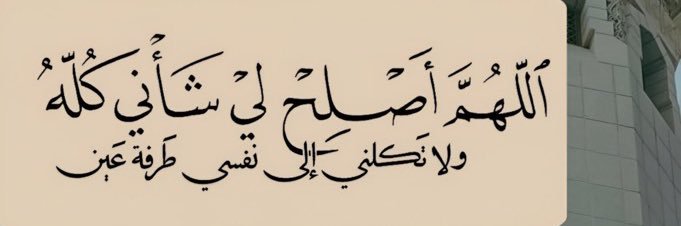 ٱللّهُمَّ أَصْلِحْ لِيْ شَأْنِي كُلّهُ
ولا تَكلني إلى نفسي طَرفة عَين